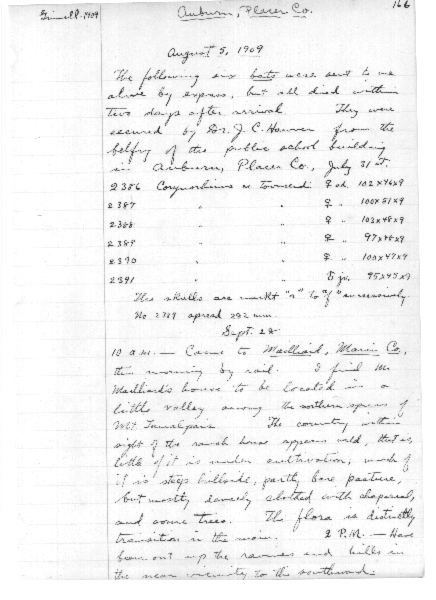 Grinnell-1909
Auburn, Placer Co. 166
August 5, 1909
The following six bats were sent to me
alive by express, but all died within
two days after arrival. They were
secured by Dr. J.C. Hawver from the
belfry of the public school building
in Auburn, Placer Co., July 31st.
2386 Corynorhinus m. townsendi ♀ ad. 102x46x9
2387 " " ♀ " 100x51x9
2388 " " ♀ " 103x48x9
2389 " " ♀ " 97x48x9
2390 " " ♀ " 100x47x9
2391 " " jv. 95x43x9
The skulls are markt "a" to "f" successively.
No. 2389 spread 282 mm.
Sept. 28
10 a.m. — Came to Mailliard, Marin Co,
this morning by rail. I find Mr.
Mailliard's house to be located in a
little valley among the northern spurs of
Mt. Tamalpais. The country within
sight of the ranch house appears wild, that is,
little of it is under cultivation, much of
it is steep hillside, partly bare pasture,
but mostly densely clothed with chaparral,
and some trees. The flora is distinctly
transition in the main. 2 P.M. — Have
been out up the ravines and hills in
the near vicinity to the southward.